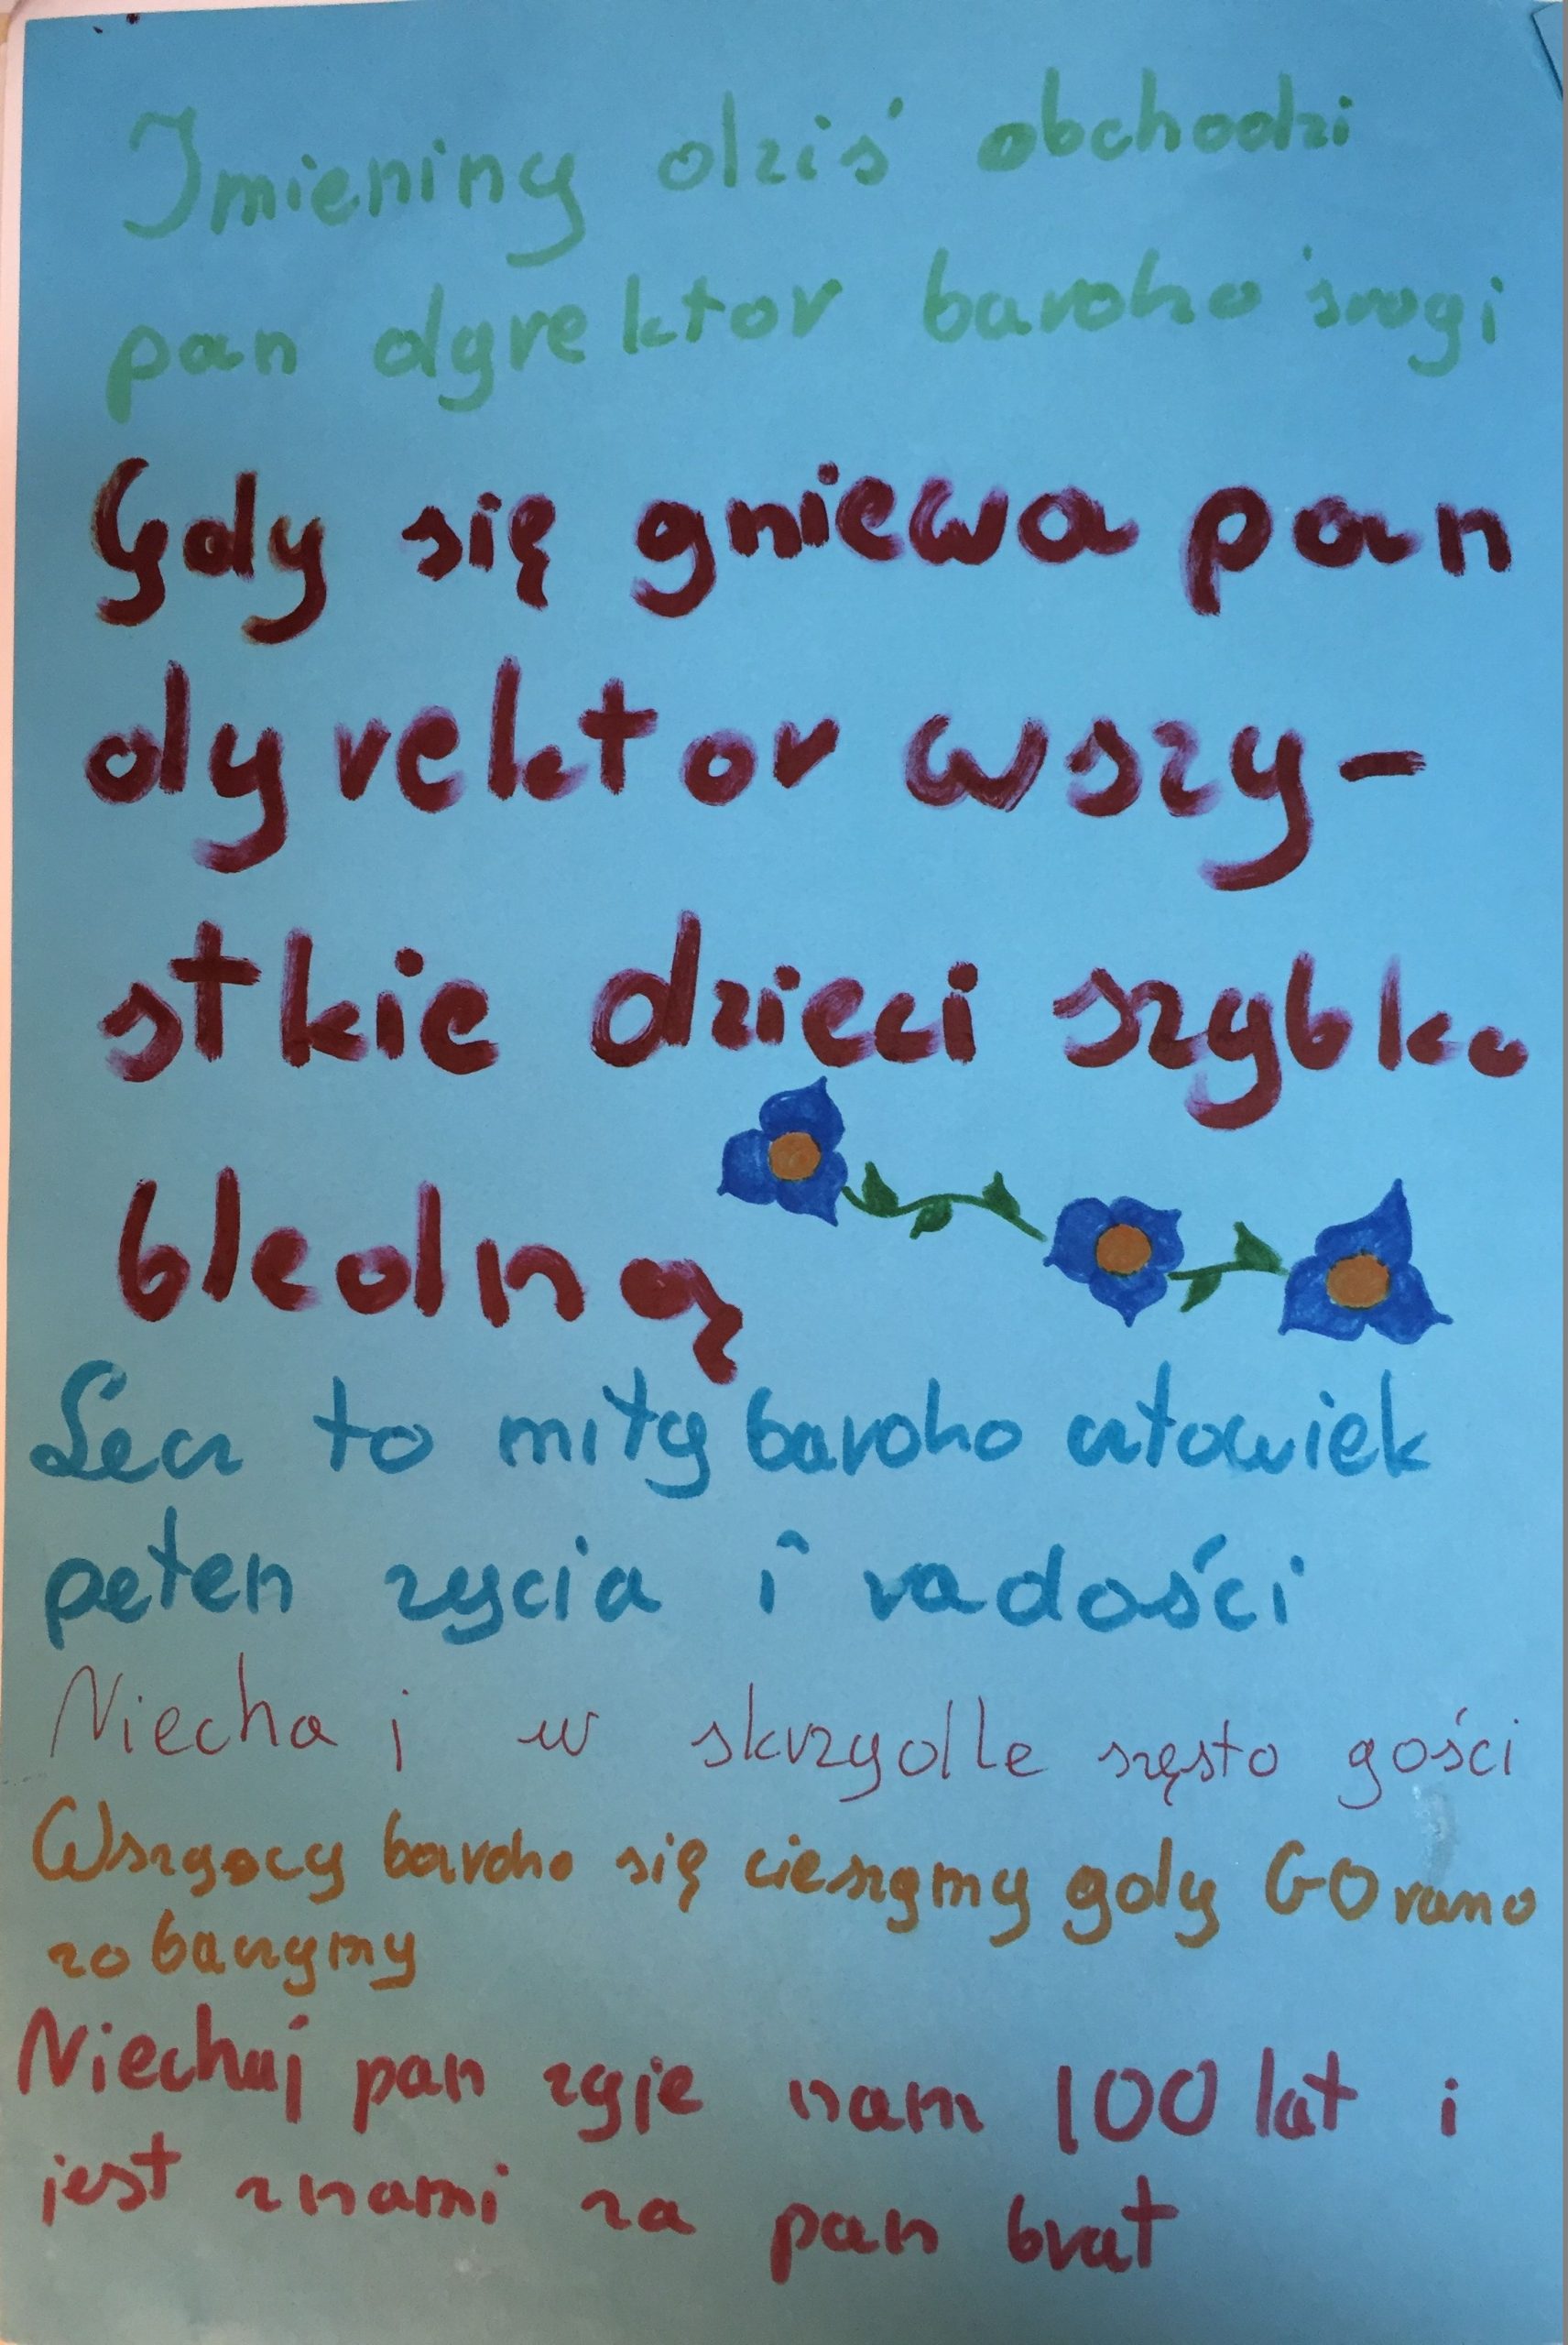 Imieniny dziś obchodzi
pan dyrektor bardzo srogi
Gdy się gniewa pan
dyrektor wszy-
stkie dzieci szybko
bledną
Lecz to miły bardzo człowiek
pełen zycia i radości
Niechaj w skrzydlle szęsto gości
Wszyscy bardzo się cieszymy gdy GO rano
zobaczymy
Niechaj pan zyje nam 100 lat i
jest znami za pan brat